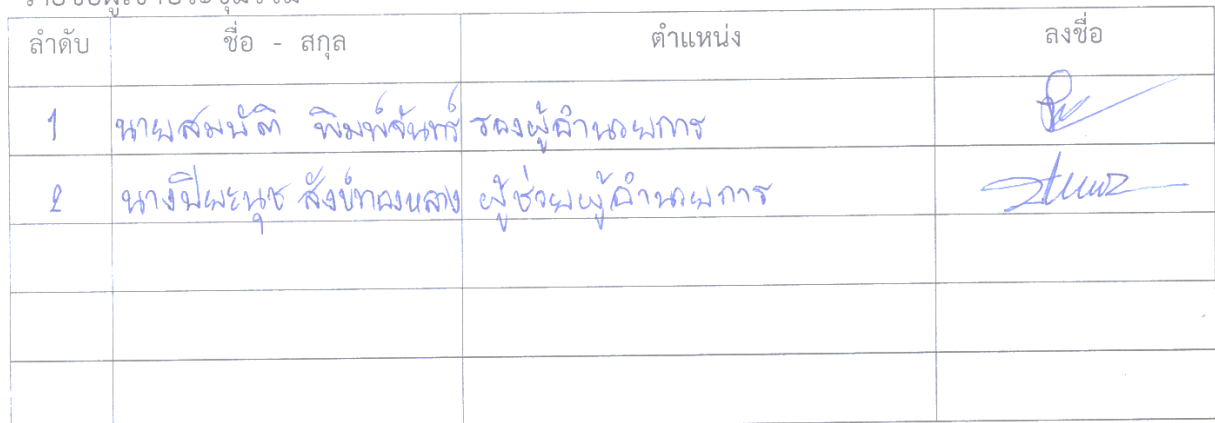 ลำดับ ชื่อ - สกุล ตำแหน่ง ลงชื่อ
1 นายสมบัติ พิมพ์จันทร์ รองผู้อำนวยการ
2 นางปิยะนุช สังข์ทองหลาง ผู้ช่วยผู้อำนวยการ